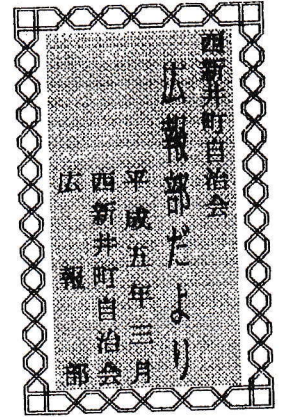 西新井町自治会
広報部だより
平成五年三月
西新井町自治会
広報部